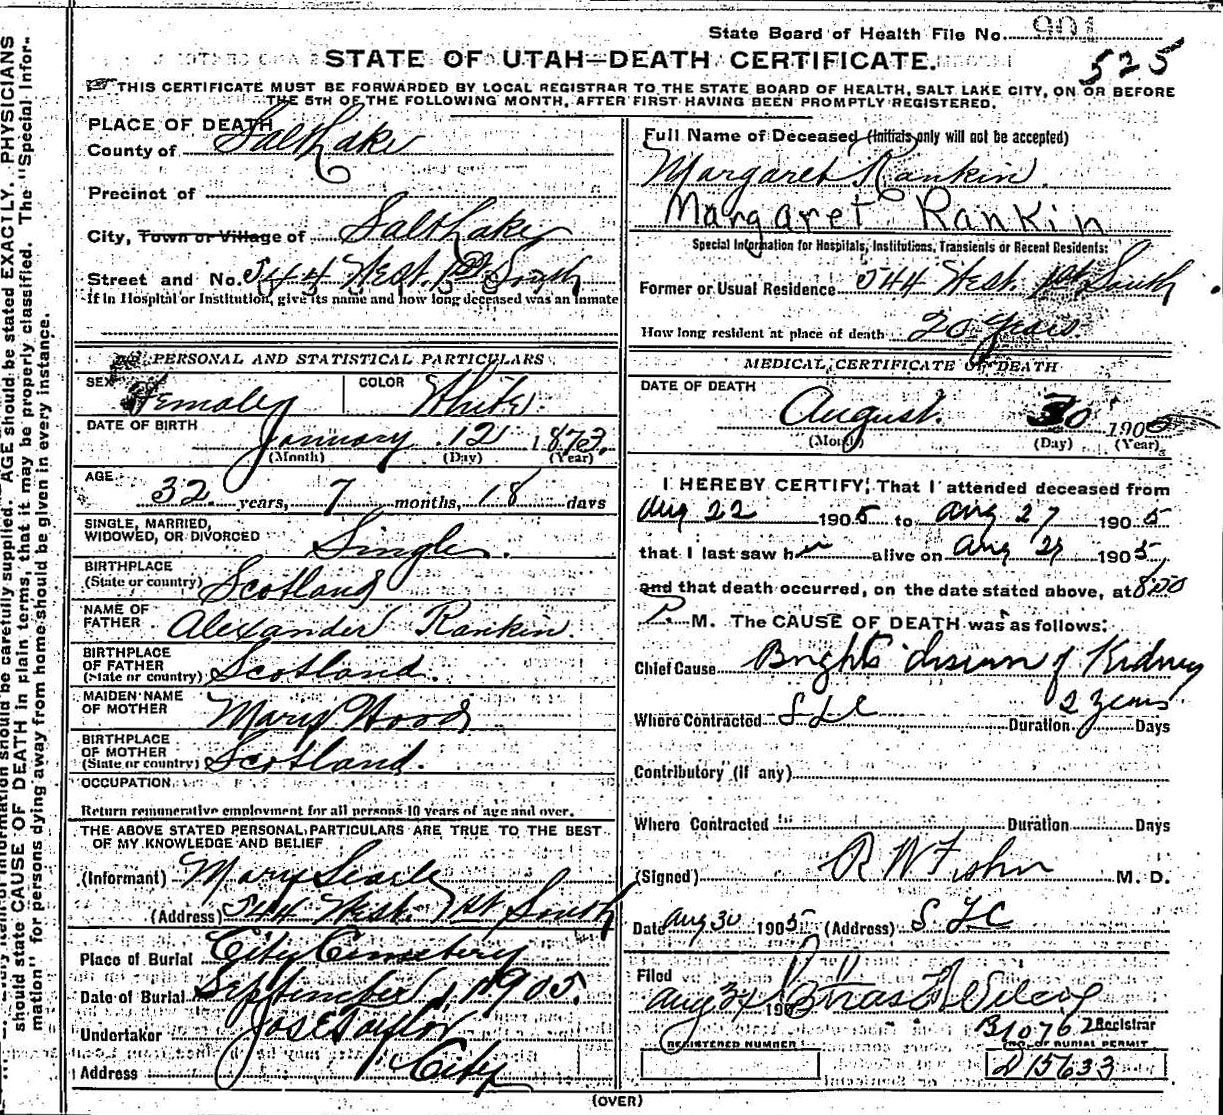 State Board of Health File No. 901
525
STATE OF UTAH—DEATH CERTIFICATE.
THIS CERTIFICATE MUST BE FORWARDED BY LOCAL REGISTRAR TO THE STATE BOARD OF HEALTH, SALT LAKE CITY, ON OR BEFORE
THE 5TH OF THE FOLLOWING MONTH, AFTER FIRST HAVING BEEN PROMPTLY REGISTERED.
PLACE OF DEATH
County of Salt Lake
Precinct of
City, Town or Village of Salt Lake
Street and No. 544 West. 1st South
If in Hospital or Institution, give its name and how long deceased was an inmate
PERSONAL AND STATISTICAL PARTICULARS
SEX Female COLOR White.
DATE OF BIRTH
January 12 1873.
(Month) (Day) (Year)
AGE
32 years, 7 months, 18 days
SINGLE, MARRIED,
WIDOWED, OR DIVORCED Single.
BIRTHPLACE
(State or country) Scotland
NAME OF
FATHER Alexander Rankin.
BIRTHPLACE
OF FATHER
(State or country) Scotland.
MAIDEN NAME
OF MOTHER Mary Wood
BIRTHPLACE
OF MOTHER
(State or country) Scotland.
OCCUPATION
Return remunerative employment for all persons 10 years of age and over.
THE ABOVE STATED PERSONAL PARTICULARS ARE TRUE TO THE BEST
OF MY KNOWLEDGE AND BELIEF
(Informant) Mary Searle
(Address) 544 West. 1st South
Place of Burial City Cemetery
Date of Burial September 1, 1905.
Undertaker Jos E Taylor
Address City
Full Name of Deceased (Initials only will not be accepted)
Margaret Rankin.
Margaret Rankin
Special Information for Hospitals, Institutions, Transients or Recent Residents:
Former or Usual Residence 544 West. 1st South
How long resident at place of death 20 Years
MEDICAL CERTIFICATE OF DEATH
DATE OF DEATH
August. 30 1905
(Month) (Day) (Year)
I HEREBY CERTIFY, That I attended deceased from
Aug 22 1905 to Aug 27 1905
that I last saw her alive on Aug 1905
and that death occurred, on the date stated above, at 8:00
P. M. The CAUSE OF DEATH was as follows:
Chief Cause Brights disease of Kidney
Where Contracted S L C Duration 2 years Days
Contributory (if any)
Where Contracted Duration Days
(Signed) R W Fisher M. D.
Date Aug 30 1905 (Address) S. L C
Filed
Aug 31 190 Wilcox
B1076 2 Registrar
REGISTERED NUMBER NO. OF BURIAL PERMIT
D 15633
(OVER)
should state CAUSE OF DEATH in plain terms, that it may be properly classified. The "Special Infor-
mation" for persons dying away from home should be given in every instance.